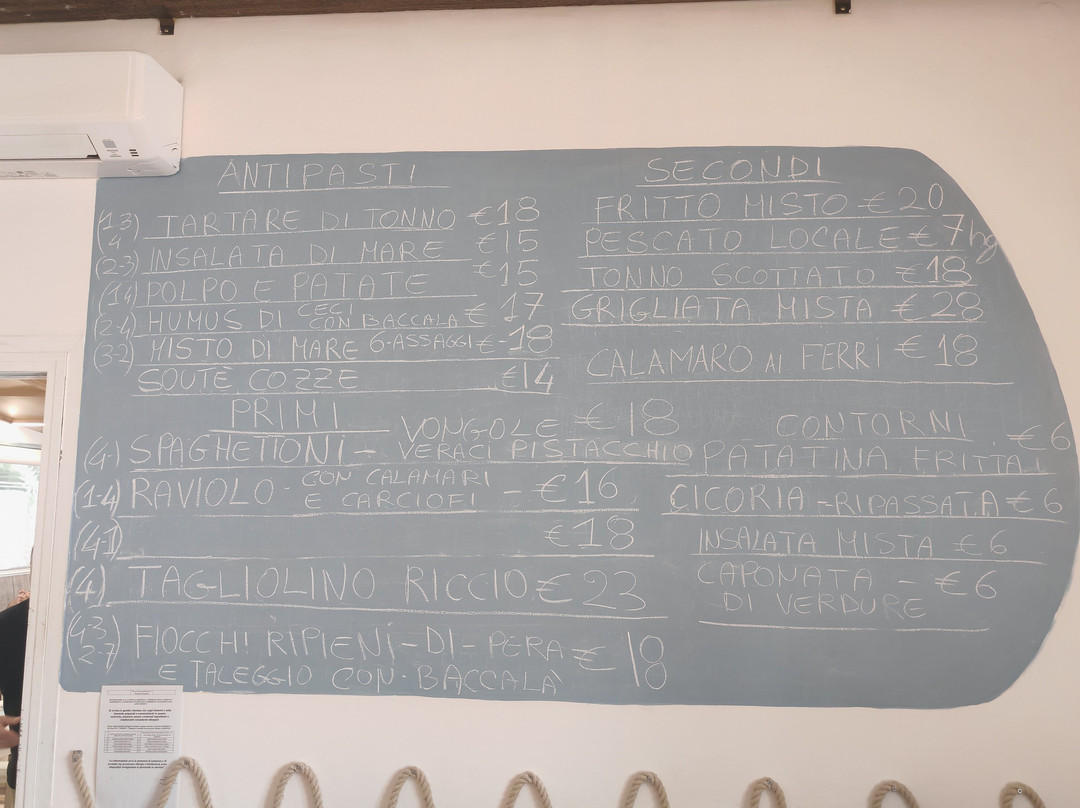 ANTIPASTI
(1-3) TARTARE DI TONNO €18
4
(2-3) INSALATA DI MARE €15
(14) POLPO E PATATE €15
(2-4) HUMUS DI CECI CON BACCALA €17
(3-2) MISTO DI MARE 6-ASSAGGI €-18
SOUTÈ COZZE €14
PRIMI
(4-1) SPAGHETTONI - VONGOLE VERACI PISTACCHIO €18
(1-4) RAVIOLO - CON CALAMARI E CARCIOFI - €16
(41) €18
(4) TAGLIOLINO RICCIO €23
FIOCCHI RIPIENI-DI-PERA €18
E TALEGGIO CON·BACCALÀ
SECONDI
FRITTO MISTO €20
PESCATO LOCALE €7hg
TONNO SCOTTATO €18
GRIGLIATA MISTA €28
CALAMARO AI FERRI €18
CONTORNI
PATATINA FRITTA €6
CICORIA -RIPASSATA €6
INSALATA MISTA €6
CAPONATA - €6
DI VERDURE